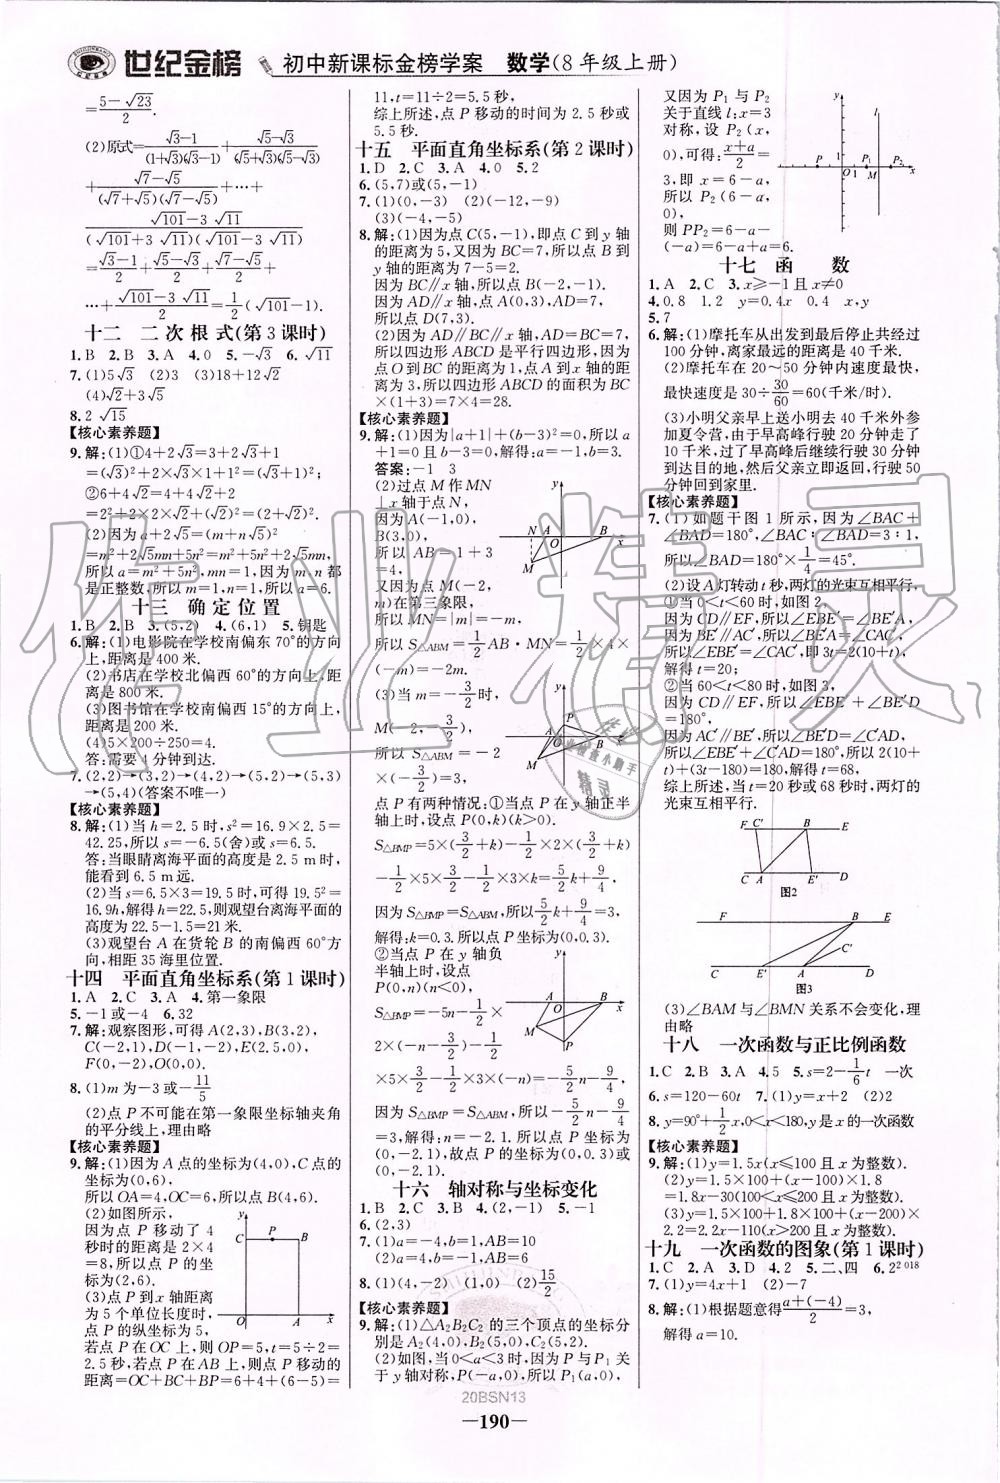 世纪金榜 初中新课标金榜学案 数学(8年级上册)
=(5-√23)/2.
(2)原式=(√3-1)/((1+√3)(√3-1))+(√5-√3)/((√5+√3)(√5-√3))
+(√7-√5)/((√7+√5)(√7-√5))+…+
(√101-3√11)/((√101+3√11)(√101-3√11))
=(√3-1)/2+(√5-√3)/2+(√7-√5)/2+
…+(√101-3√11)/2=1/2(√101-1).
十二 二次根式(第3课时)
1.B 2.B 3.A 4.0 5.-√3 6.√11
7.(1)5√3 (2)3 (3)18+12√2
(4)√2+3√5
8.2√15
【核心素养题】
9.解:(1)①4+2√3=3+2√3+1
=(√3)²+2×√3×1+1²=(√3+1)²;
②6+4√2=4+4√2+2
=2²+2×2×√2+(√2)²=(2+√2)².
(2)因为a+2√5=(m+√5n)²
=m²+2√5mn+5n²=m²+5n²+2√5mn,
所以a=m²+5n²,mn=1,因为m,n都
是正整数,所以m=1,n=1,故a=6.
十三 确定位置
1.B 2.B 3.(5,2) 4.(6,1) 5.钥匙
6.解:(1)电影院在学校南偏东70°的方向
上,距离是400米.
(2)书店在学校北偏西60°的方向上,
距离是800米.
(3)图书馆在学校南偏西15°的方向上,
距离是200米.
(4)5×200÷250=4.
答:需要4分钟到达.
7.(2,2)→(3,2)→(4,2)→(5,2)→(5,3)
→(5,4)(答案不唯一)
【核心素养题】
8.解:(1)当h=2.5时,s²=16.9×2.5=
42.25,所以s=-6.5(舍)或s=6.5.
答:当眼睛离海平面的高度是2.5m时,能
看到6.5m远.
(2)当s=6.5×3=19.5时,可得19.5²=
16.9h,解得h=22.5,则观望台离海平面的
高度为22.5-1.5=21(米)
(3)观望台A在货轮B的南偏西60°方
向,相距35海里位置.
十四 平面直角坐标系(第1课时)
1.A 2.C 3.A 4.第一象限
5.-1或-4 6.32
7.解:观察图形,可得A(2,3),B(3,2),
C(-2,1),D(-1,-2),E(2.5,0),
F(0,-2),O(0,0).
8.(1)m为-3或-11/5
(2)点P不可能在第一象限坐标轴夹角
的平分线上,理由略
【核心素养题】
9.解:(1)因为A点的坐标为(4,0),C点的
坐标为(0,6),
所以OA=4,OC=6,所以B(4,6).
(2)如图所示,
因为点P移动了4
秒时的距离是2×4
=8,所以点P的坐
标为(2,6).
(3)点P到x轴距离
为5个单位长度时,
点P的纵坐标为5,
若点P在OC上,则OP=5,t=5÷2=
2.5秒,若点P在AB上,则点P移动的
距离=OC+BC+BP=6+4+(6-5)=
y C B O A x
11,t=11÷2=5.5秒,
综上所述,点P移动的时间为2.5秒或
5.5秒.
十五 平面直角坐标系(第2课时)
1.D 2.C 3.A 4.0 5.2
6.(5,7)或(5,-1)
7.(1)(0,-3) (2)(-12,-9)
(3)(-4,-5)
8.解:(1)因为点C(5,-1),即点C到y轴
的距离为5,又因为BC=7,所以点B到
y轴的距离为7-5=2.
因为BC∥x轴,所以点B(-2,-1).
因为AD∥x轴,点A(0,3),AD=7,
所以点D(7,3).
(2)因为AD∥BC∥x轴,AD=BC=7,
所以四边形ABCD是平行四边形,因为
点O到BC的距离为1,点A到x轴的距
离为3,所以四边形ABCD的面积为BC
×(1+3)=7×4=28.
【核心素养题】
9.解:(1)因为|a+1|+(b-3)²=0,所以a
+1=0且b-3=0,解得:a=-1,b=3.
答案:-1 3
(2)过点M作MN
⊥x轴于点N,
因为A(-1,0),
B(3,0),
所以AB=1+3
=4,
又因为点M(-2,
m)在第三象限,
所以MN=|m|=-m,
所以S△ABM=1/2AB·MN=1/2×4×
(-m)=-2m.
(3)当m=-3/2时,
M(-2,-3/2),
所以S△ABM=-2
×(-3/2)=3,
点P有两种情况:①当点P在y轴正半
轴上时,设点P(0,k)(k>0).
S△BMP=5×(3/2+k)-1/2×2×(3/2+k)
-1/2×5×3/2-1/2×3×k=5/2k+9/4,
因为S△BMP=S△ABM,所以5/2k+9/4=3,
解得:k=0.3.所以点P坐标为(0,0.3).
②当点P在y轴负
半轴上时,设点
P(0,n)(n<0),
S△BMP=-5n-1/2×
2×(-n-3/2)-1/2
×5×3/2-1/2×3×(-n)=-5/2n-9/4,
因为S△BMP=S△ABM,所以-5/2n-9/4
=3,解得:n=-2.1.所以点P坐标为
(0,-2.1),故点P的坐标为(0,0.3)或
(0,-2.1).
十六 轴对称与坐标变化
1.B 2.B 3.B 4.(2,-1) 5.-1
6.(2,3)
7.(1)a=-4,b=1,AB=10
(2)a=4,b=-1,AB=6
8.(1)(4,-2) (1,0) (2)15/2
【核心素养题】
9.解:(1)△A₂B₂C₂的三个顶点的坐标分
别是A₂(4,0),B₂(5,0),C₂(5,2).
(2)如图,当0<a<3时,因为P与P₁关
于y轴对称,P(-a,0),所以P₁(a,0),
又因为P₁与P₂
关于直线l:x=3
对称,设P₂(x,
0),可得:(x+a)/2=
3,即x=6-a,
所以P₂(6-a,
0),
则PP₂=6-a-
(-a)=6-a+a=6.
十七 函数
1.A 2.C 3.x≥-1且x≠0
4.0.8 1.2 y=0.4x 0.4 x,y
5.7
6.解:(1)摩托车从出发到最后停止共经过
100分钟,离家最远的距离是40千米.
(2)摩托车在20~50分钟内速度最快,
最快速度是30÷30/60=60(千米/时).
(3)小明父亲早上送小明去40千米外参
加夏令营,由于早高峰行驶20分钟走了
10千米,过了早高峰后继续行驶30分钟
到达目的地,然后父亲立即返回,行驶50
分钟回到家里.
【核心素养题】
7.(1)如题干图1所示,因为∠BAC+
∠BAD=180°,∠BAC:∠BAD=3:1,
所以∠BAD=180°×1/4=45°.
(2)设A灯转动t秒,两灯的光束互相平行,
①当0<t<60时,如图2,
因为CD∥EF,所以∠EBE′=∠BE′A,
因为BE′∥AC′,所以∠BE′A=∠CAC′,
所以∠EBE′=∠CAC′,即3t=2(10+t),
解得t=20;
②当60<t<80时,如图3,
因为CD∥EF,所以∠EBE′+∠BE′D
=180°,
因为AC′∥BE′,所以∠BE′D=∠C′AD,
所以∠EBE′+∠C′AD=180°,所以2(10+
t)+(3t-180)=180,解得t=68,
综上所述,当t=20秒或68秒时,两灯的
光束互相平行.
F C′ B E
C A E′ D
图2
F B E
C′
C E′ A D
图3
(3)∠BAM与∠BMN关系不会变化,理
由略
十八 一次函数与正比例函数
1.C 2.B 3.A 4.5 5.s=2-1/6t 一次
6.s=120-60t 7.(1)y=x+2 (2)2
8.y=90°+1/2x,0<x<180,y是x的一次函数
【核心素养题】
9.解:(1)y=1.5x(x≤100且x为整数).
(2)y=1.5×100+1.8×(x-100)
=1.8x-30(100<x≤200且x为整数).
(3)y=1.5×100+1.8×100+(x-200)×
2.2=2.2x-110(x>200且x为整数)
十九 一次函数的图象(第1课时)
1.C 2.A 3.D 4.2 5.二、四 6.2²⁰¹⁸
7.(1)y=4x+1 (2)-7
8.解:(1)根据题意得(a+(-4))/2=3,
解得a=10.
20BSN13
—190—